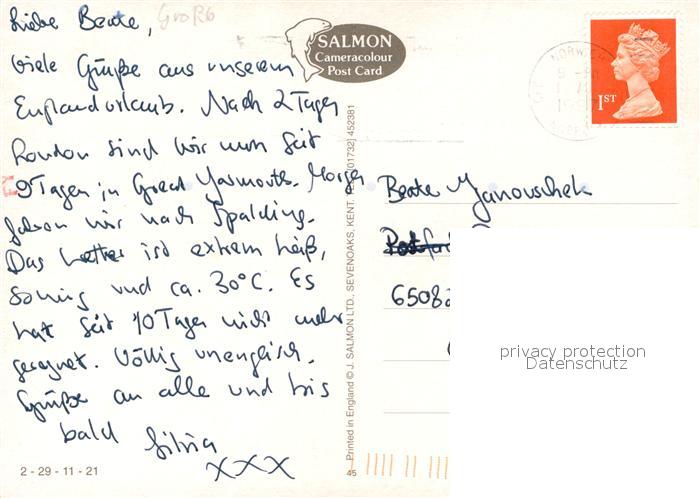 Liebe Beate,
viele Grüße aus unserem
Englandurlaub. Nach 2 Tagen
London sind wir nun seit
9 Tagen in Great Yarmouth. Morgen
fahren wir nach Spalding.
Das Wetter ist extrem heiß,
sonnig und ca. 30°C. Es
hat seit 10 Tagen nicht mehr
geregnet. Völlig unenglisch.
Grüße an alle und bis
bald Silvia
XXX
2 - 29 - 11 - 21
SALMON
Cameracolour
Post Card
Printed in England © J. SALMON LTD., SEVENOAKS, KENT. [01732] 452381
45
1ST
Beate Janouschek
Postf
6508
privacy protection
Datenschutz